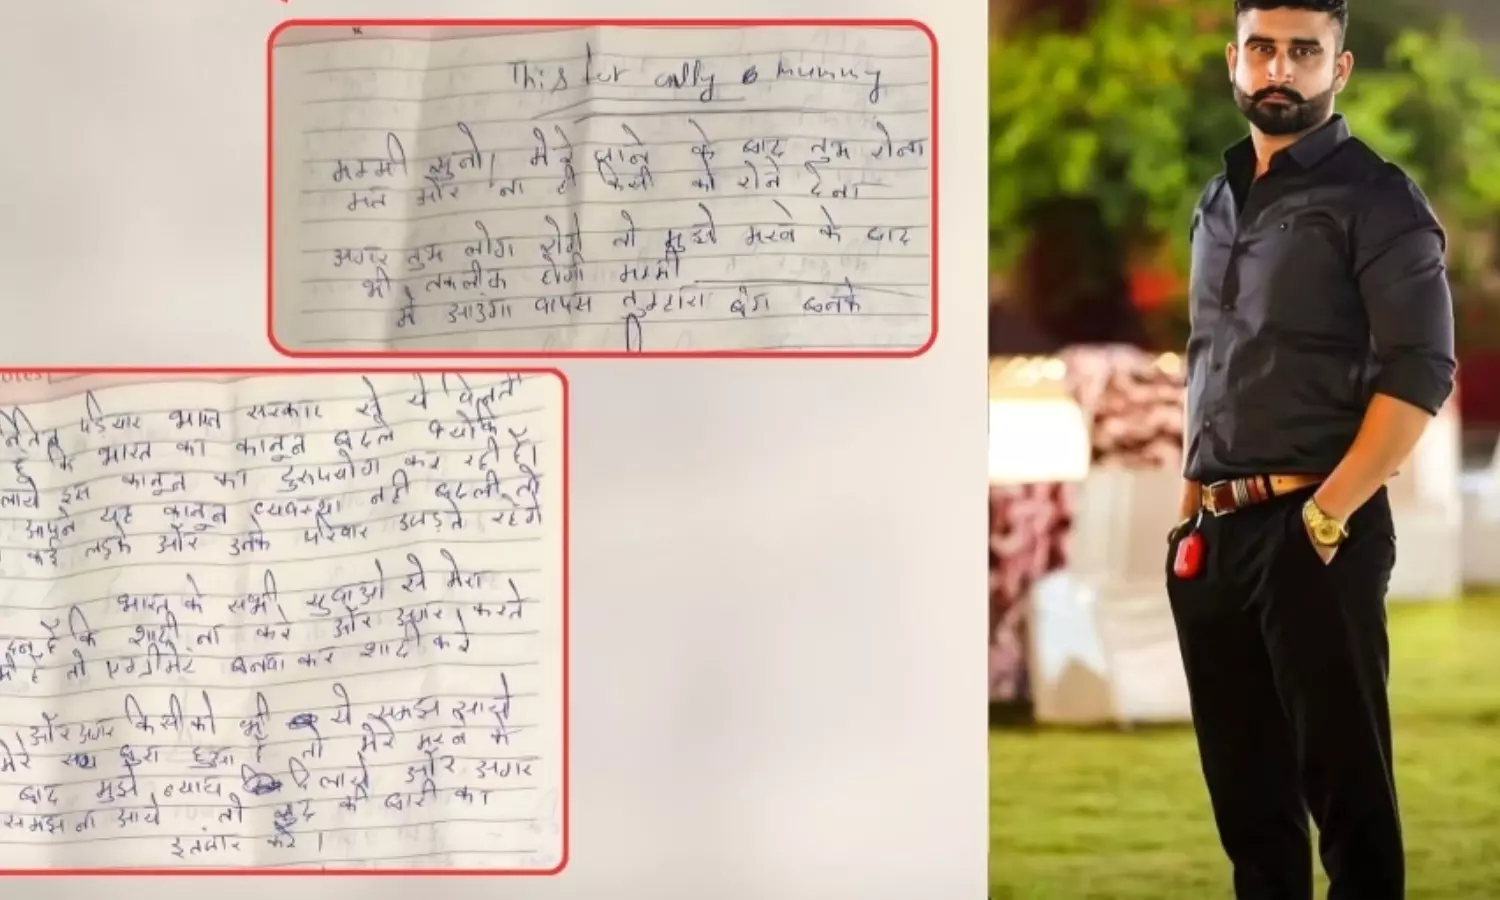 This is for only mummy
मम्मी सुनो। मेरे जाने के बाद तुम रोना
मत और ना ही किसी को रोने देना
अगर तुम लोग रोगे तो मुझे मरने के बाद
भी तकलीफ होगी मम्मी
मे आउंगा वापस तुम्हारा बेटा बनके
नितिन पडियार भारत सरकार से ये
हूँ कि भारत का कानून बदले क्योकि
इस कानून का दुरुपयोग कर रही है।
आपने यह कानून व्यवस्था नही बदली तो
कई लड़के और उनके परिवार उजड़ते रहेंगे
भारत के सभी युवाओ से मेरा
है कि शादी ना करे और अगर करते
है तो एग्रीमेंट बनवा कर शादी करे
और अगर किसी को भी ये समझ आये
मेरे साथ बुरा हुआ है तो मेरे मरने के
बाद मुझे न्याय दिलाये और अगर
समझ ना आये तो खुद की बारी का
इंतजार करे।